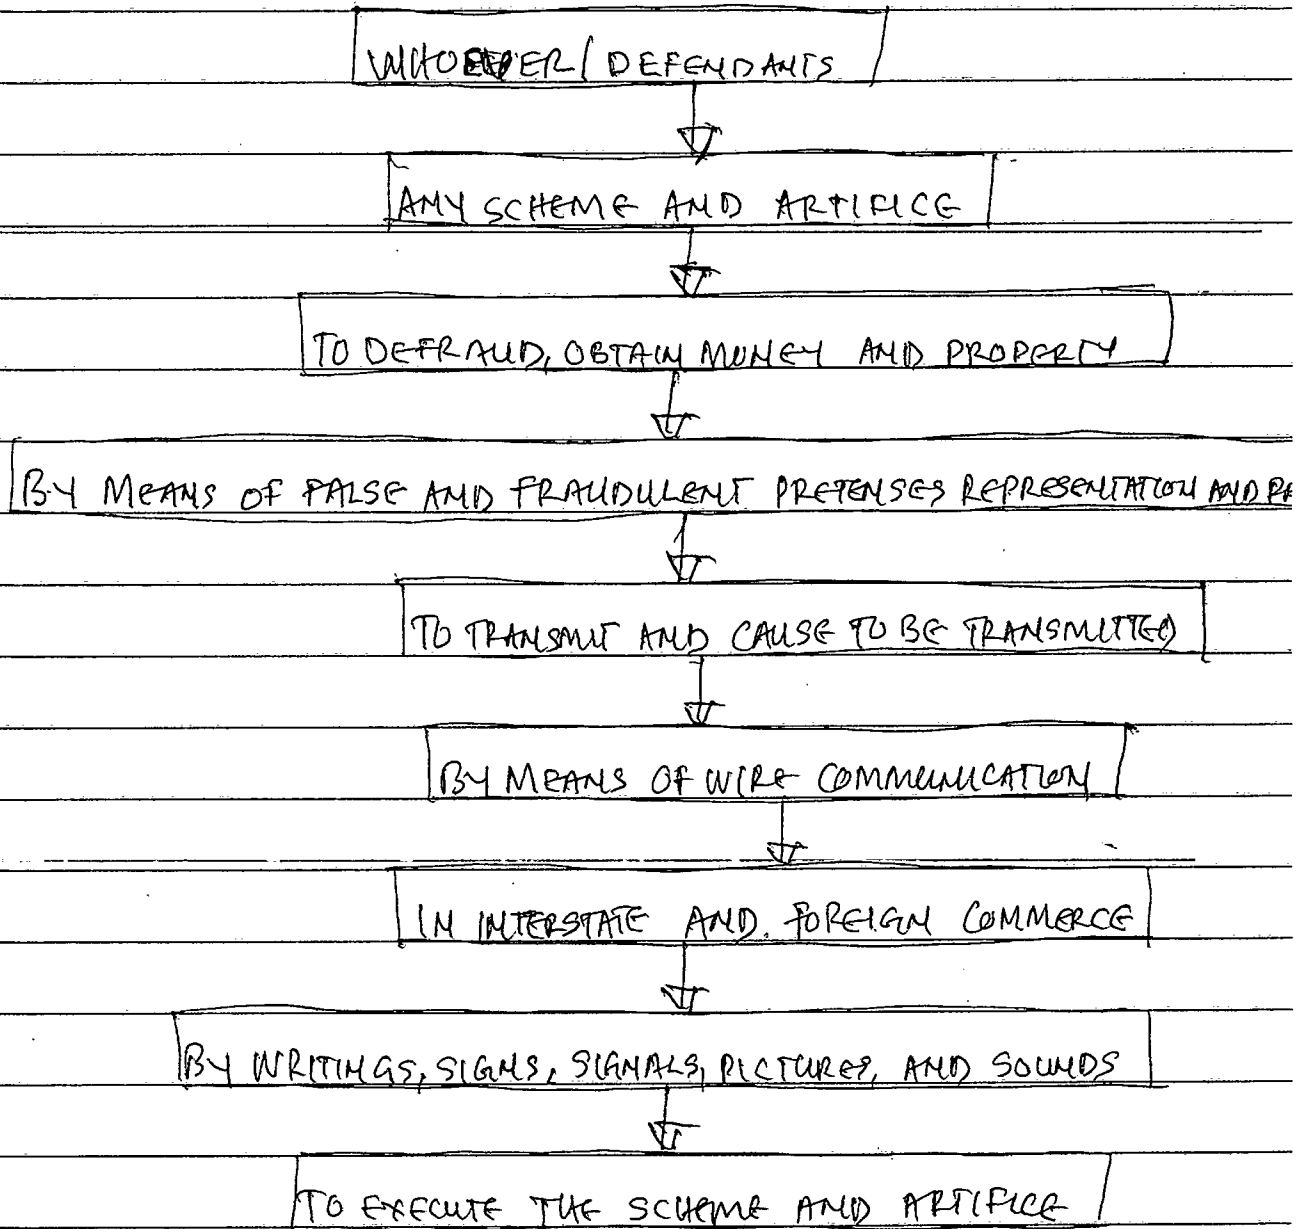 WHOEVER/DEFENDANTS
ANY SCHEME AND ARTIFICE
TO DEFRAUD, OBTAIN MONEY AND PROPERTY
BY MEANS OF FALSE AND FRAUDULENT PRETENSES REPRESENTATION AND
TO TRANSMIT AND CAUSE TO BE TRANSMITTED
BY MEANS OF WIRE COMMUNICATION
IN INTERSTATE AND. FOREIGN COMMERCE
BY WRITINGS, SIGNS, SIGNALS, PICTURES, AND SOUNDS
TO EXECUTE THE SCHEME AND ARTIFICE